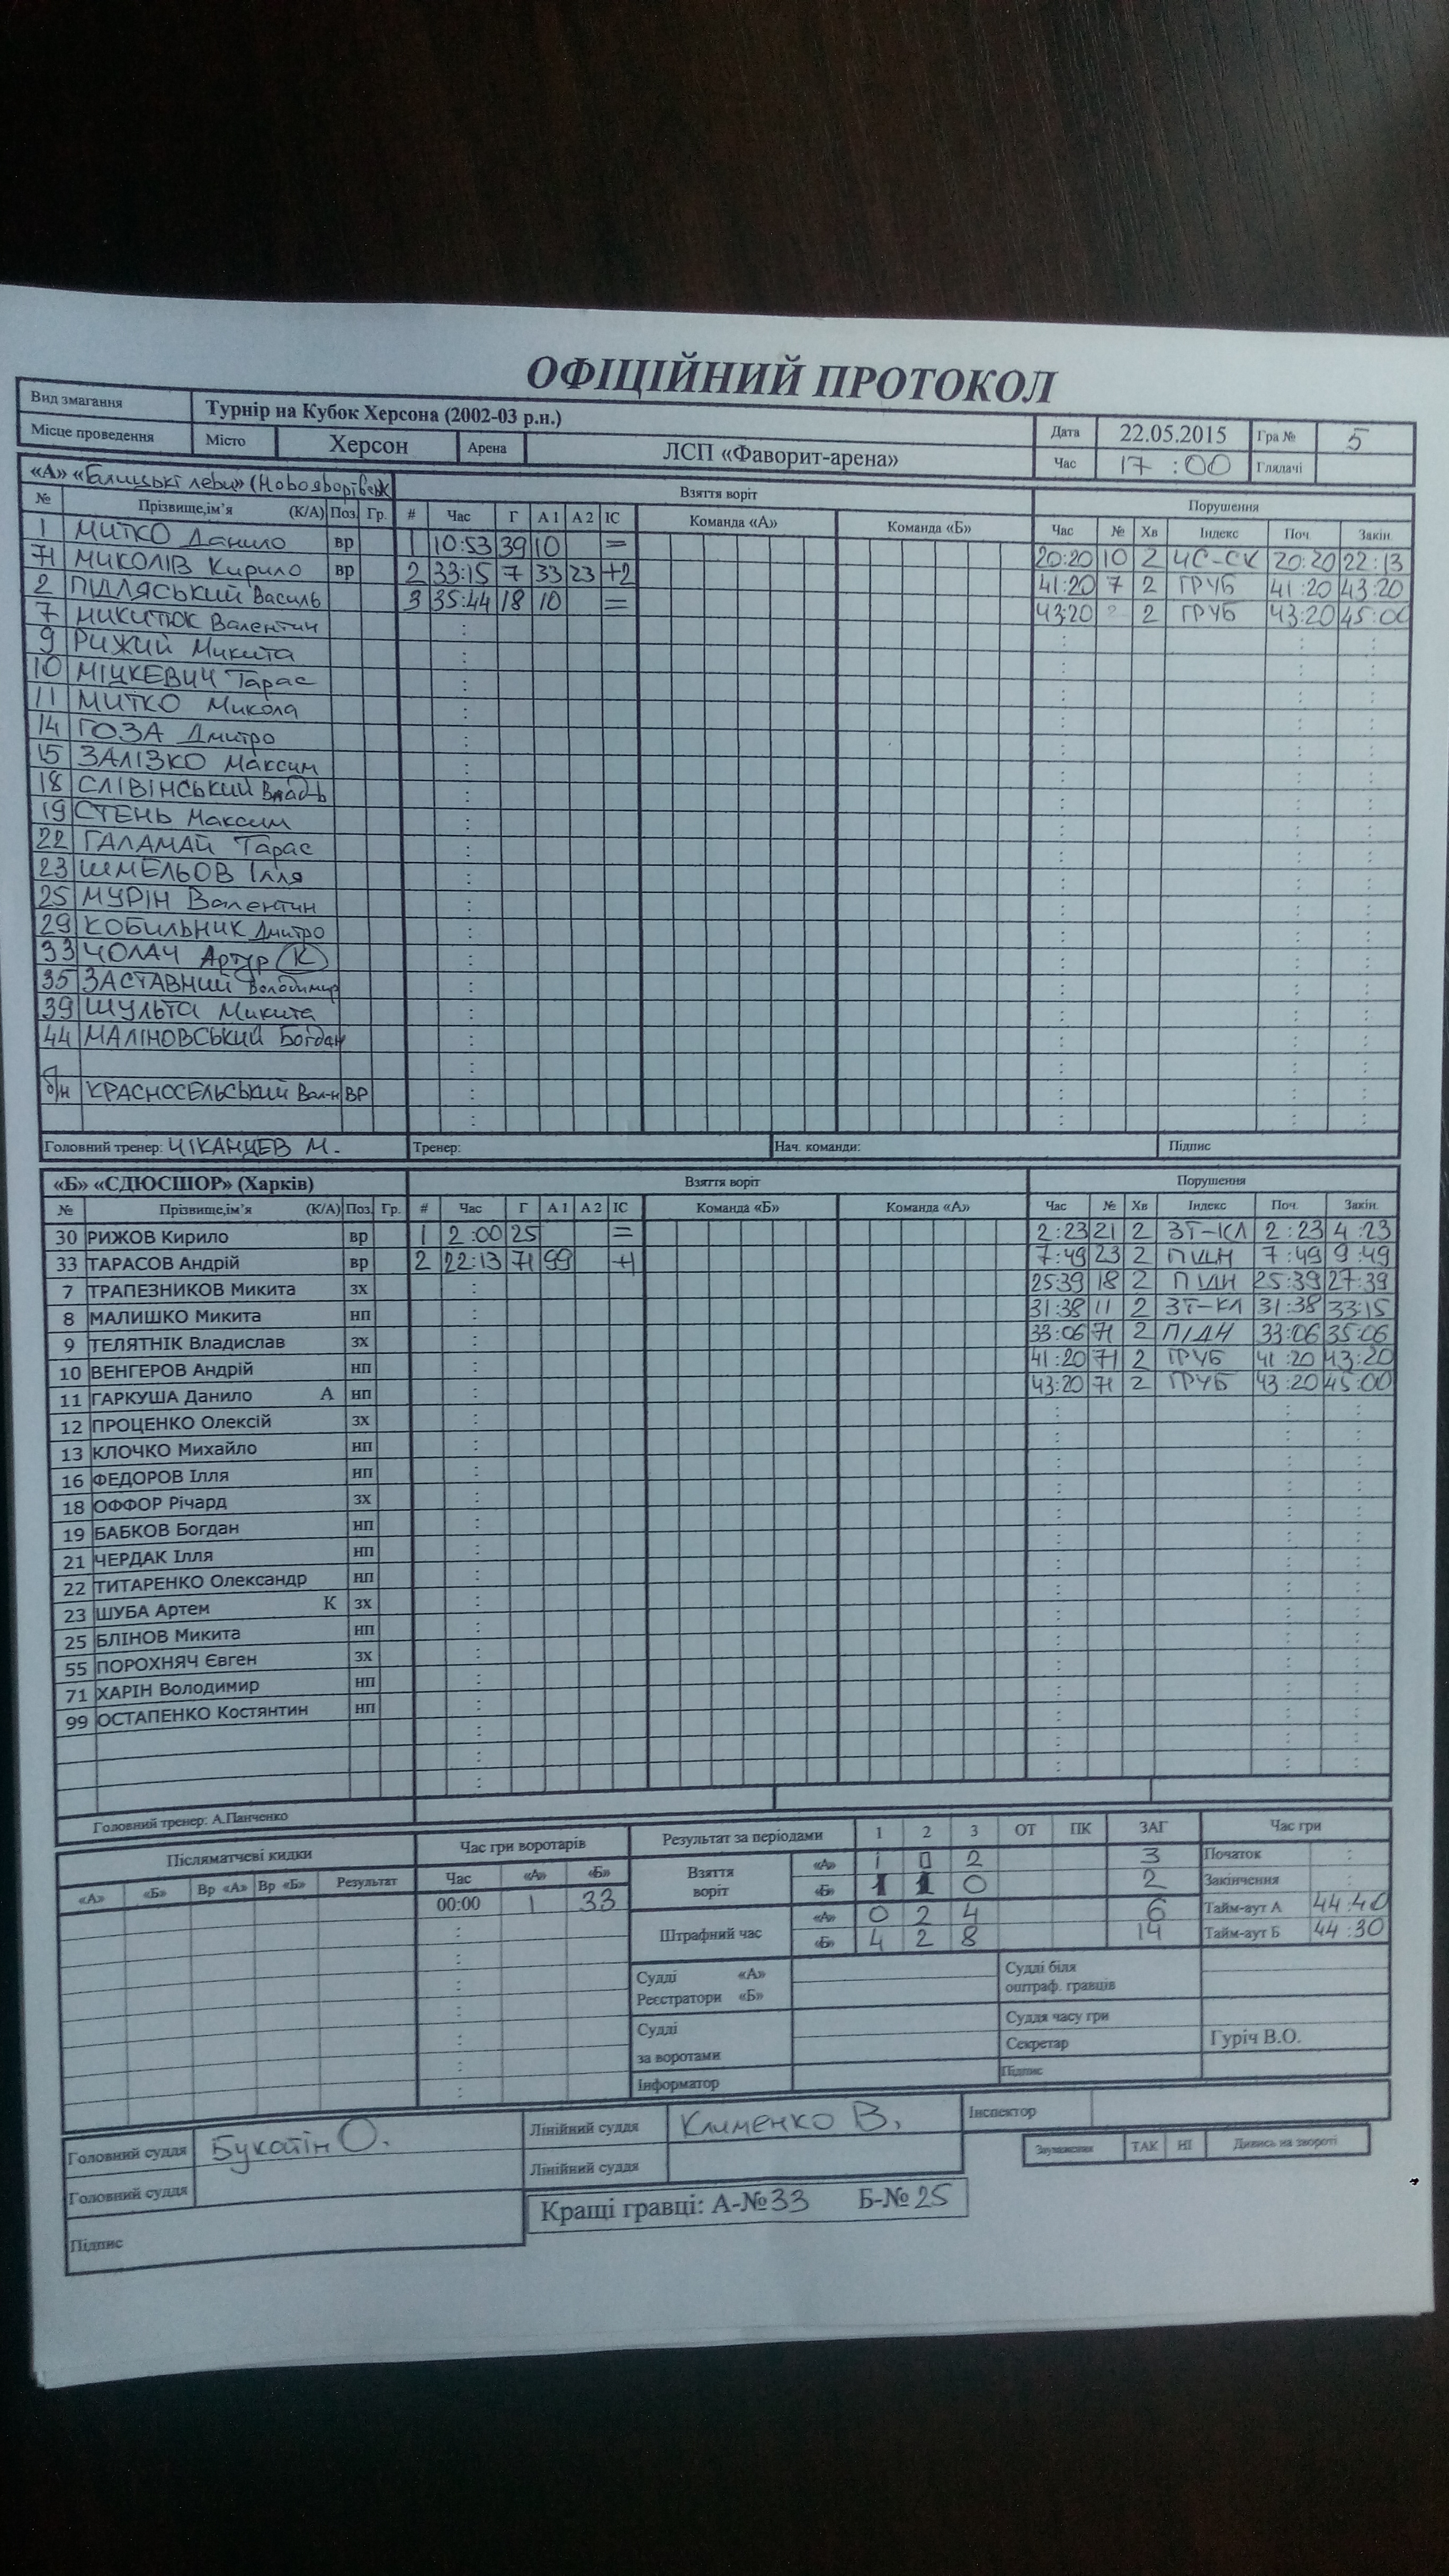 ОФІЦІЙНИЙ ПРОТОКОЛ
Вид змагання Турнір на Кубок Херсона (2002-03 р.н.) Дата 22.05.2015 Гра № 5
Місце проведення Місто Херсон Арена ЛСП «Фаворит-арена» Час 17 :00 Глядачі
«А» «Галицькі леви» Взяття воріт Порушення
№ Прізвище,ім'я (К/А) Поз Гр. # Час Г А 1 А 2 ІС Команда «А» Команда «Б» Час № Хв Індекс Поч. Закін.
1 МИТКО Данило вр 1 10:53 39 10 = 20:20 10 2 ЧС-СК 20:20 22:13
71 МИКОЛІВ Кирило вр 2 33:15 7 33 23 +2 41:20 7 2 ГРУБ 41:20 43:20
2 ПІДЛЯСЬКИЙ Василь 3 35:44 18 10 = 43:20 2 2 ГРУБ 43:20 45:00
7 МИКИТЮК Валентин
9 РИЖИЙ Микита
10 МІЦКЕВИЧ Тарас
11 МИТКО Микола
14 ГОЗА Дмитро
15 ЗАЛІЗКО Максим
18 СЛІВІНСЬКИЙ Влад-в
19 СТЕНЬ Максим
22 ГАЛАМАЙ Тарас
23 ШМЕЛЬОВ Ілля
25 МУРІН Валентин
29 КОБИЛЬНИК Дмитро
33 ЧОЛАЧ Артур К
35 ЗАСТАВНИЙ Володимир
39 ШУЛЬГА Микита
44 МАЛІНОВСЬКИЙ Богдан
б/н КРАСНОСЕЛЬСЬКИЙ Вал-н ВР
Головний тренер: ЧІКАНЦЕВ М. Тренер: Нач. команди: Підпис
«Б» «СДЮСШОР» (Харків) Взяття воріт Порушення
№ Прізвище,ім'я (К/А) Поз. Гр. # Час Г А 1 А 2 ІС Команда «Б» Команда «А» Час № Хв Індекс Поч. Закін.
30 РИЖОВ Кирило вр 1 2:00 25 = 2:23 21 2 ЗТ-КЛ 2:23 4:23
33 ТАРАСОВ Андрій вр 2 22:13 71 99 +1 7:49 23 2 ПІДН 7:49 9:49
7 ТРАПЕЗНИКОВ Микита зх 25:39 18 2 ПІДН 25:39 27:39
8 МАЛИШКО Микита нп 31:38 11 2 ЗТ-КЛ 31:38 33:15
9 ТЕЛЯТНІК Владислав зх 33:06 71 2 ПІДН 33:06 35:06
10 ВЕНГЕРОВ Андрій нп 41:20 71 2 ГРУБ 41:20 43:20
11 ГАРКУША Данило А нп 43:20 71 2 ГРУБ 43:20 45:00
12 ПРОЦЕНКО Олексій зх
13 КЛОЧКО Михайло нп
16 ФЕДОРОВ Ілля нп
18 ОФФОР Річард зх
19 БАБКОВ Богдан нп
21 ЧЕРДАК Ілля нп
22 ТИТАРЕНКО Олександр нп
23 ШУБА Артем К зх
25 БЛІНОВ Микита нп
55 ПОРОХНЯЧ Євген зх
71 ХАРІН Володимир нп
99 ОСТАПЕНКО Костянтин нп
Головний тренер: А.Панченко
Післяматчеві кидки Час гри воротарів Результат за періодами 1 2 3 ОТ ПК ЗАГ Час гри
«А» «Б» Вр «А» Вр «Б» Результат Час «А» «Б» Взяття воріт «А» 1 0 2 3 Початок
00:00 1 33 «Б» 1 1 0 2 Закінчення
Штрафний час «А» 0 2 4 6 Тайм-аут А 44:40
«Б» 4 2 8 14 Тайм-аут Б 44:30
Судді «А» Судді біля
Реєстратори «Б» оштраф. гравців
Судді Суддя часу гри
за воротами Секретар Гуріч В.О.
Інформатор Підпис
Головний суддя Букатін О. Лінійний суддя Клименко В. Інспектор
Головний суддя Лінійний суддя Зауваження ТАК НІ Дивись на звороті
Підпис Кращі гравці: А-№33 Б-№25